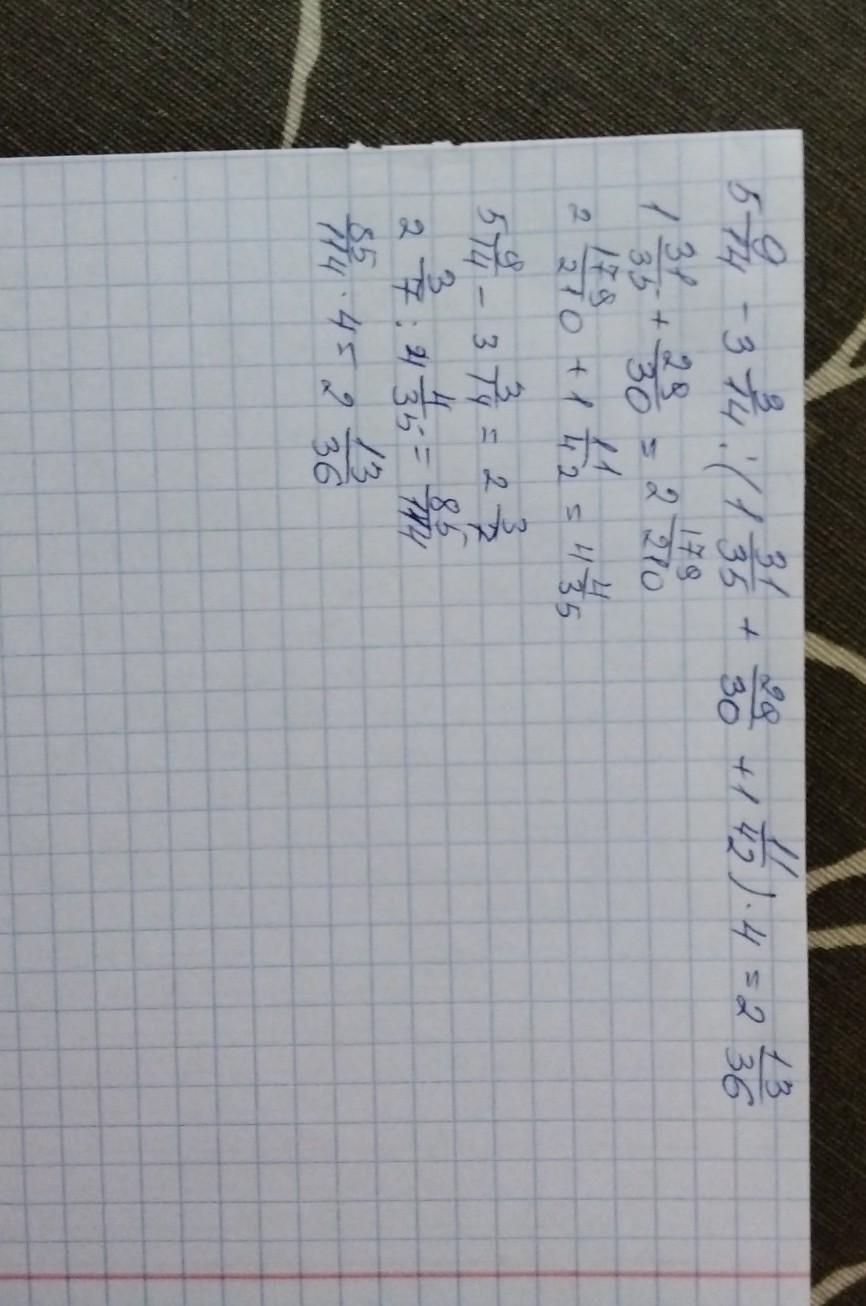 5 9/14 - 3 3/14 : (1 31/35 + 29/30 + 1 11/42) · 4 = 2 13/36
1 31/35 + 29/30 = 2 179/210
2 179/210 + 1 11/42 = 4 4/35
5 9/14 - 3 3/14 = 2 3/7
2 3/7 : 4 4/35 = 85/144
85/144 · 4 = 2 13/36